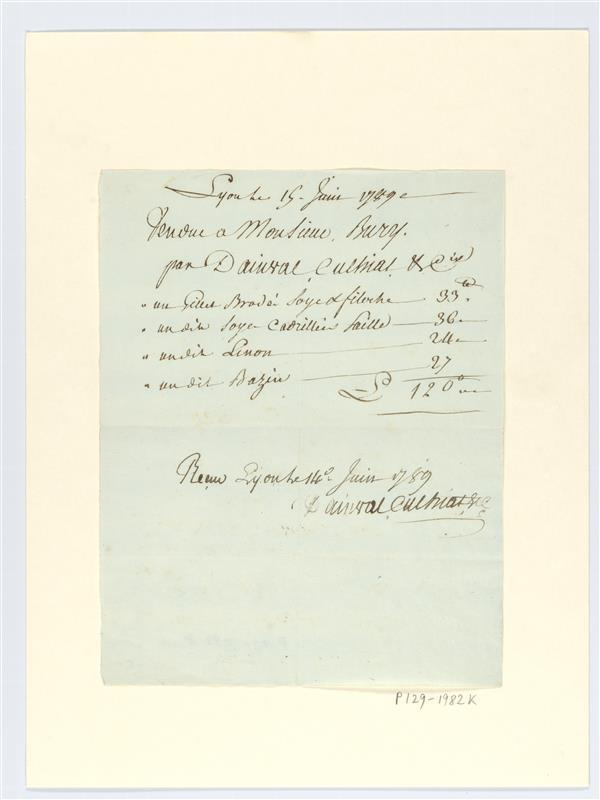 Lyon le 15 Juin 1789
Vendue a Monsieur Bury.
par Dainval Culhiat & Cie
" un Gillet Brodée Soye & filoche 33 tt
" un dit Soye Cadrillée Paille 36
" un dit Linon 24
" un dit Bazin 27
L 120
Reçu Lyon le 14e Juin 1789
Dainval Culhiat & C
P129-1982K